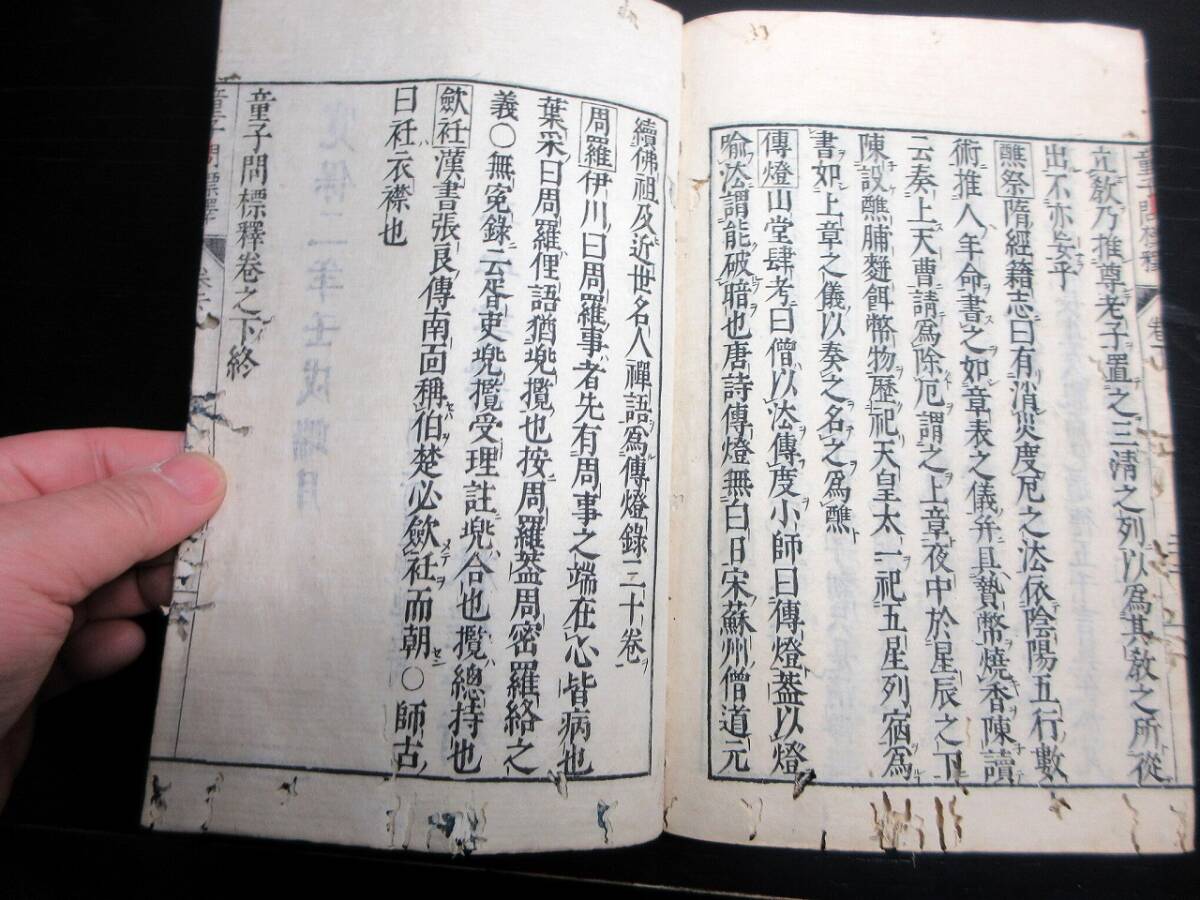 立教乃推尊老子置之三清之列以爲其教之所從
出不亦妄乎
醮祭隋經籍志曰有消災度厄之法依陰陽五行數
術推人年命書之如章表之儀幷具贄幣燒香陳讀
云奏上天曹請爲除厄謂之上章夜中於星辰之下
陳設醮脯麪餌幣物歷祀天皇太一祀五星列宿爲
書如上章之儀以奏之名之爲醮
傳燈山堂肆考曰僧以法傳度小師曰傳燈蓋以燈
喩法謂能破暗也唐詩傳燈無白日宋蘇州僧道元
續佛祖及近世名人禪語爲傳燈錄三十卷
周羅伊川曰周羅事者先有周事之端在心皆病也
葉采曰周羅俚語猶兠攬也按周羅蓋周密羅絡之
義○無寃錄云胥吏兠攬受理註兠合也攬總持也
歛衽漢書張良傳南面稱伯楚必歛衽而朝○師古
曰衽衣襟也
童子問標釋卷之下終